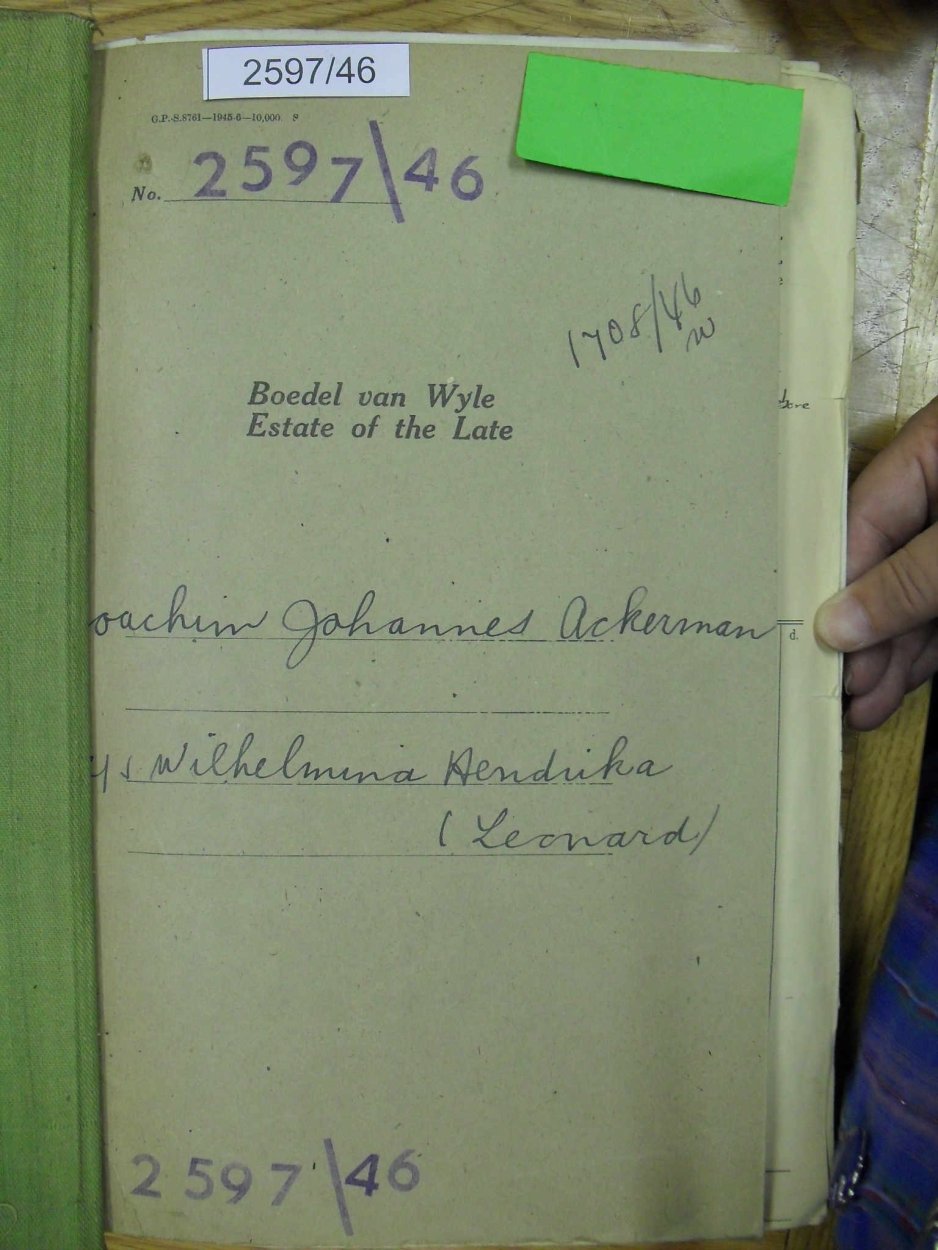 2597/46
G.P.-S.8761—1945-6—10,000. S
No. 2597\46
1708/46
w
Boedel van Wyle
Estate of the Late
oachim Johannes Ackerman
d.
Wilhelmina Hendrika
(Leonard)
2597\46